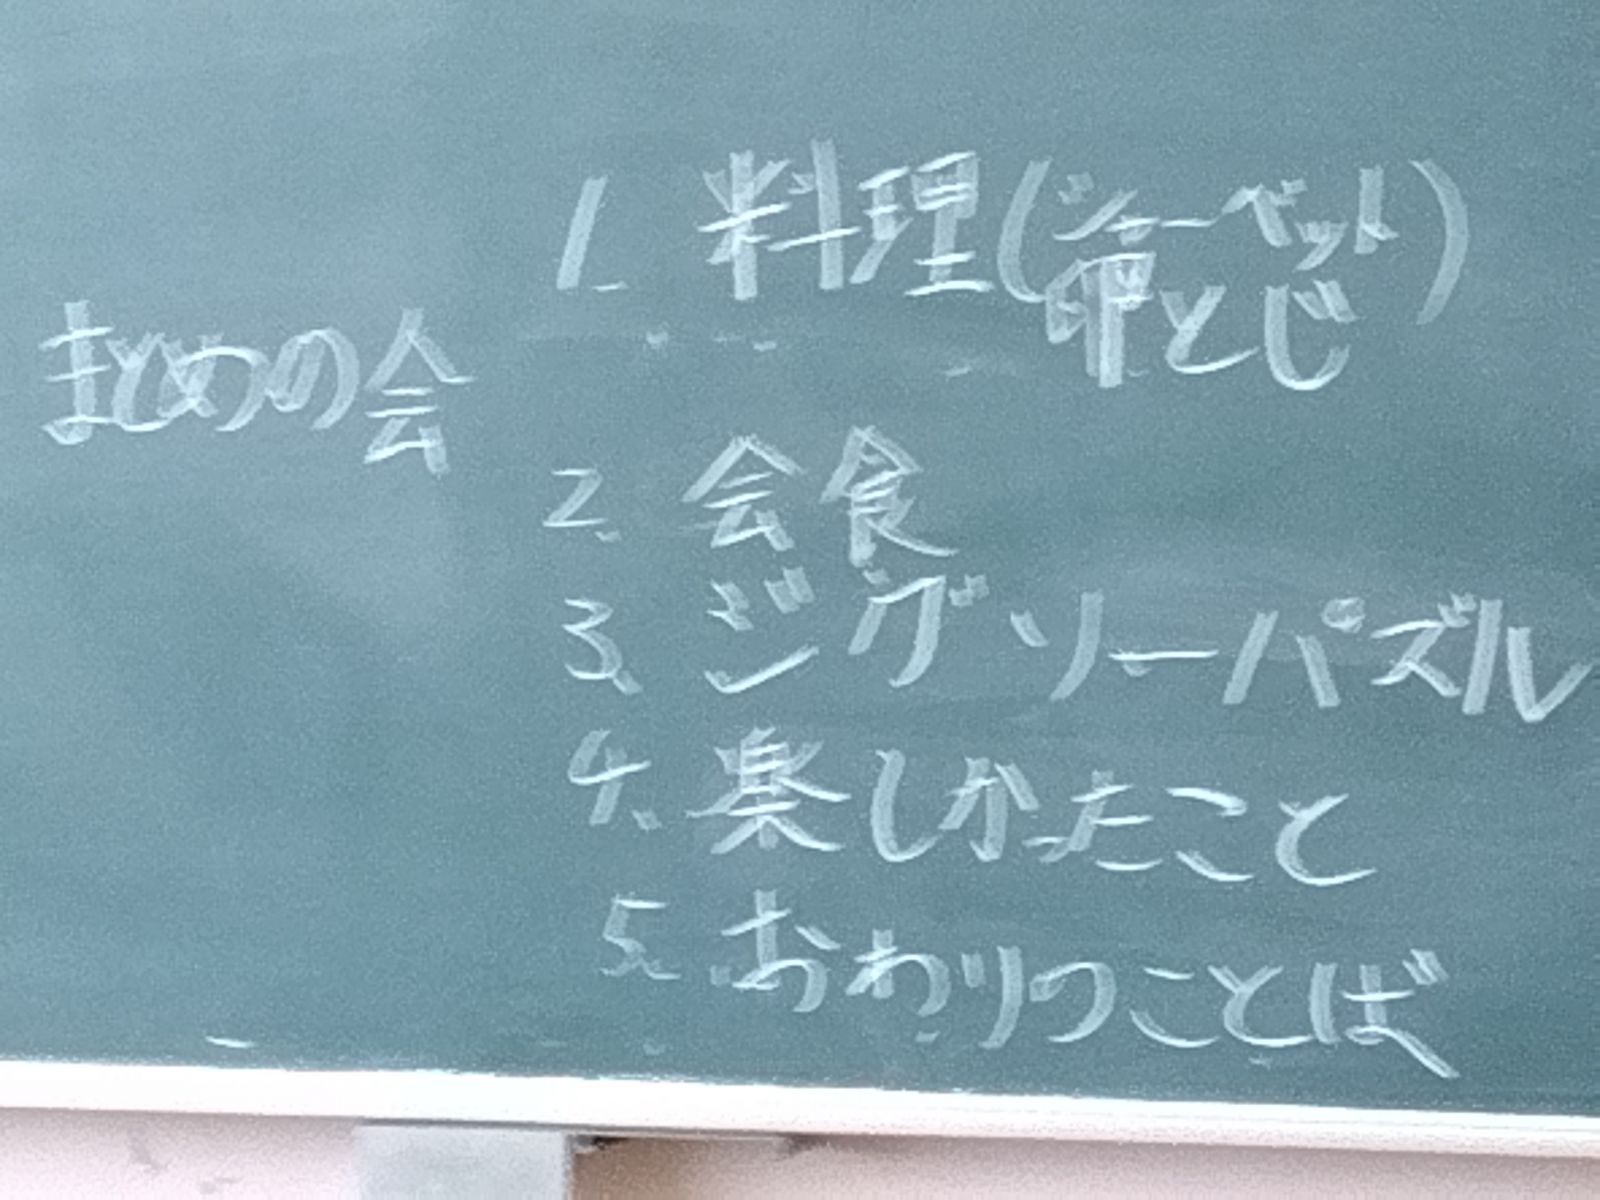 まとめの会
1. 料理(シャーベット)
卵とじ
2. 会食
3. ジグソーパズル
4. 楽しかったこと
5. おわりのことば